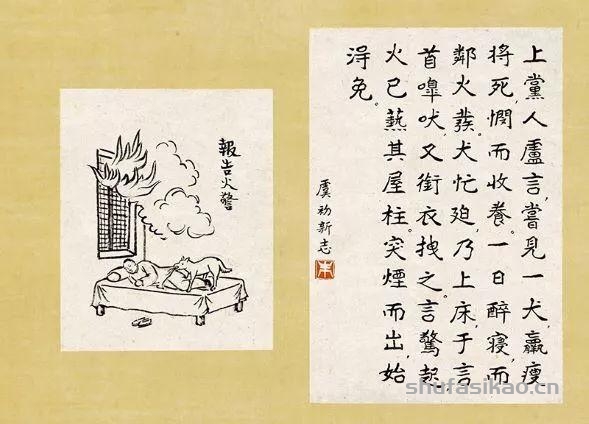 上黨人盧言，嘗見一犬，羸瘦
将死，憫而收養。一日醉寝，而
鄰火發，犬忙迫，乃上床，于言
首嘷吠，又銜衣拽之，言驚起，
火已爇其屋柱，突煙而出，始
淂免。
虞初新志
朱
報告火警
shufasikao.cn